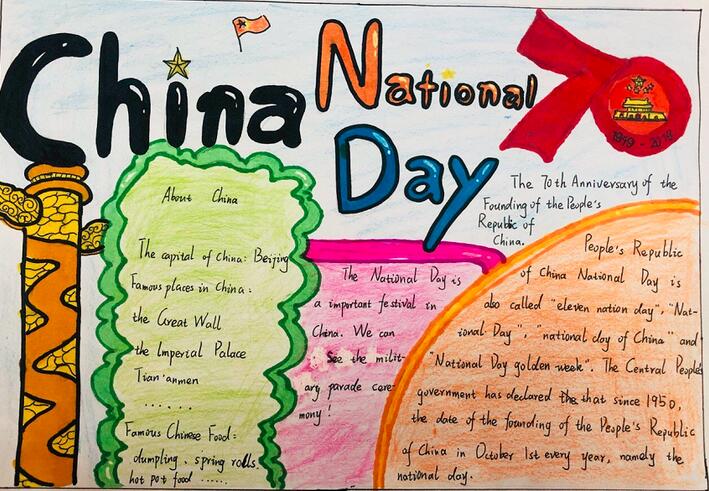 China
National
Day
1949 - 2019
The 70th Anniversary of the
Founding of the People's
Republic of
China.
About China
The capital of China: Beijing
Famous places in China:
the Great Wall
the Imperial Palace
Tian'anmen
......
Famous Chinese Food:
dumpling、spring rolls、
hot pot food ......
The National Day is
a important festival in
China. We can
See the milit-
ary parade cere-
mony!
People's Republic
of China National Day is
also called "eleven nation day", "Nat-
ional Day", "national day of China" and
"National Day golden week". The Central People's
government has declared the that since 1950,
the date of the founding of the People's Republic
of China in October 1st every year, namely the
national day.